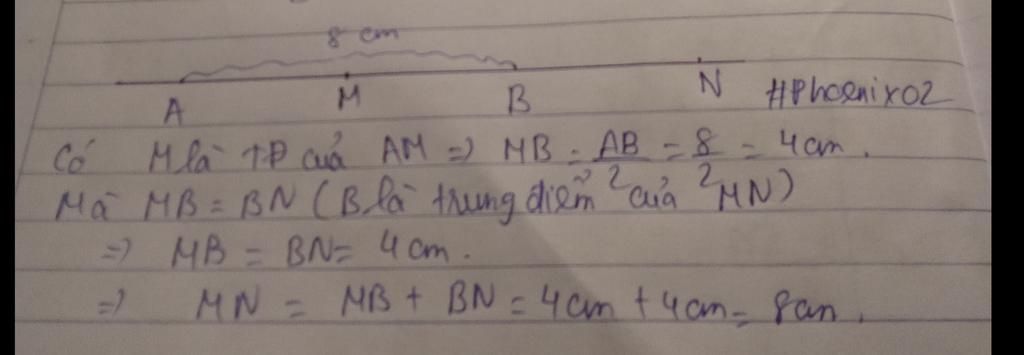 8 cm
A M B N #Phoenix02
Có M là TĐ của AM => MB = AB/2 = 8/2 = 4cm.
Mà MB = BN (B là trung điểm của MN)
=> MB = BN = 4 cm.
=> MN = MB + BN = 4cm + 4cm = 8cm.